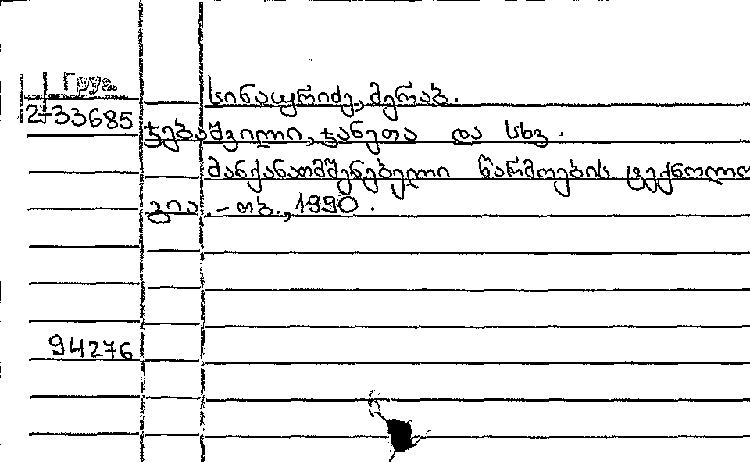 Груз.
2-33685
სინატურიძე, მერაბ.
ჯებაშვილი, ჯანეთა და სხვ.
მანქანათმშენებელი წარმოების ტექნოლო
გია. – თბ., 1990.
94276